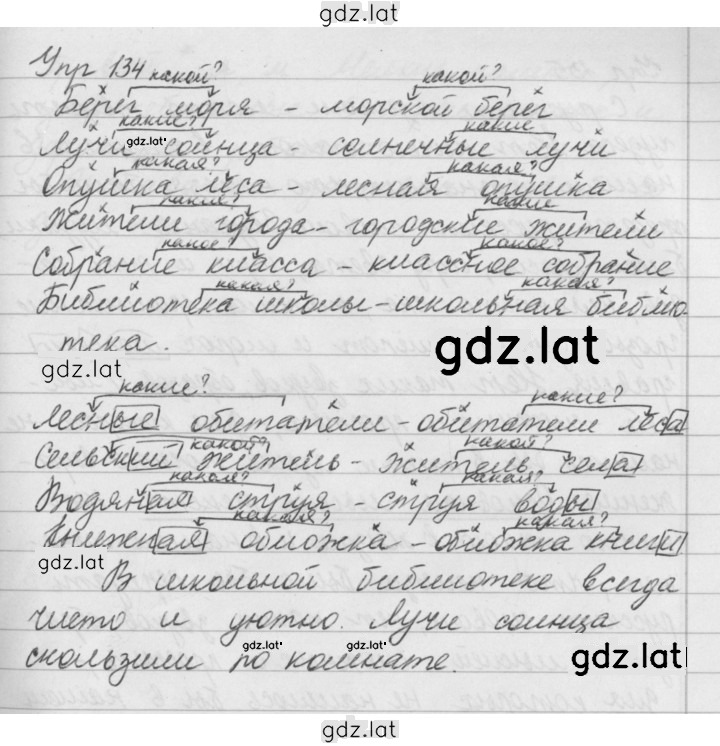 gdz.lat
Упр 134 какой? какой?
Берег моря - морской берег
какие? какие
Лучи солнца - солнечные лучи
gdz.lat
какая? какая?
Опушка леса - лесная опушка
какие? какие
Жители города - городские жители
какое? какое?
Собрание класса - классное собрание
какая? какая?
Библиотека школы - школьная библио-
тека.
gdz.lat
gdz.lat
какие? какие?
Лесные обитатели - обитатели леса
какой? какой?
Сельский житель - житель села
какая? какая?
Водяная струя - струя воды
какая? какая?
Книжная обложка - обложка книги
gdz.lat
В школьной библиотеке всегда
чисто и уютно. Лучи солнца
gdz.lat gdz.lat
скользили по комнате.
gdz.lat
gdz.lat